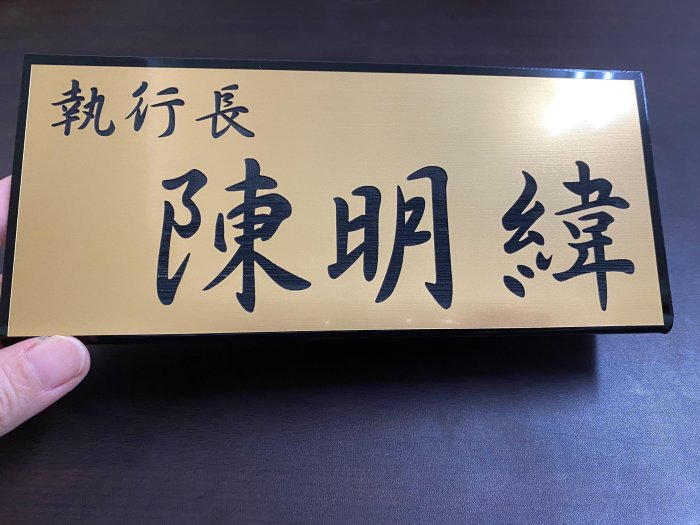 執行長
陳明緯